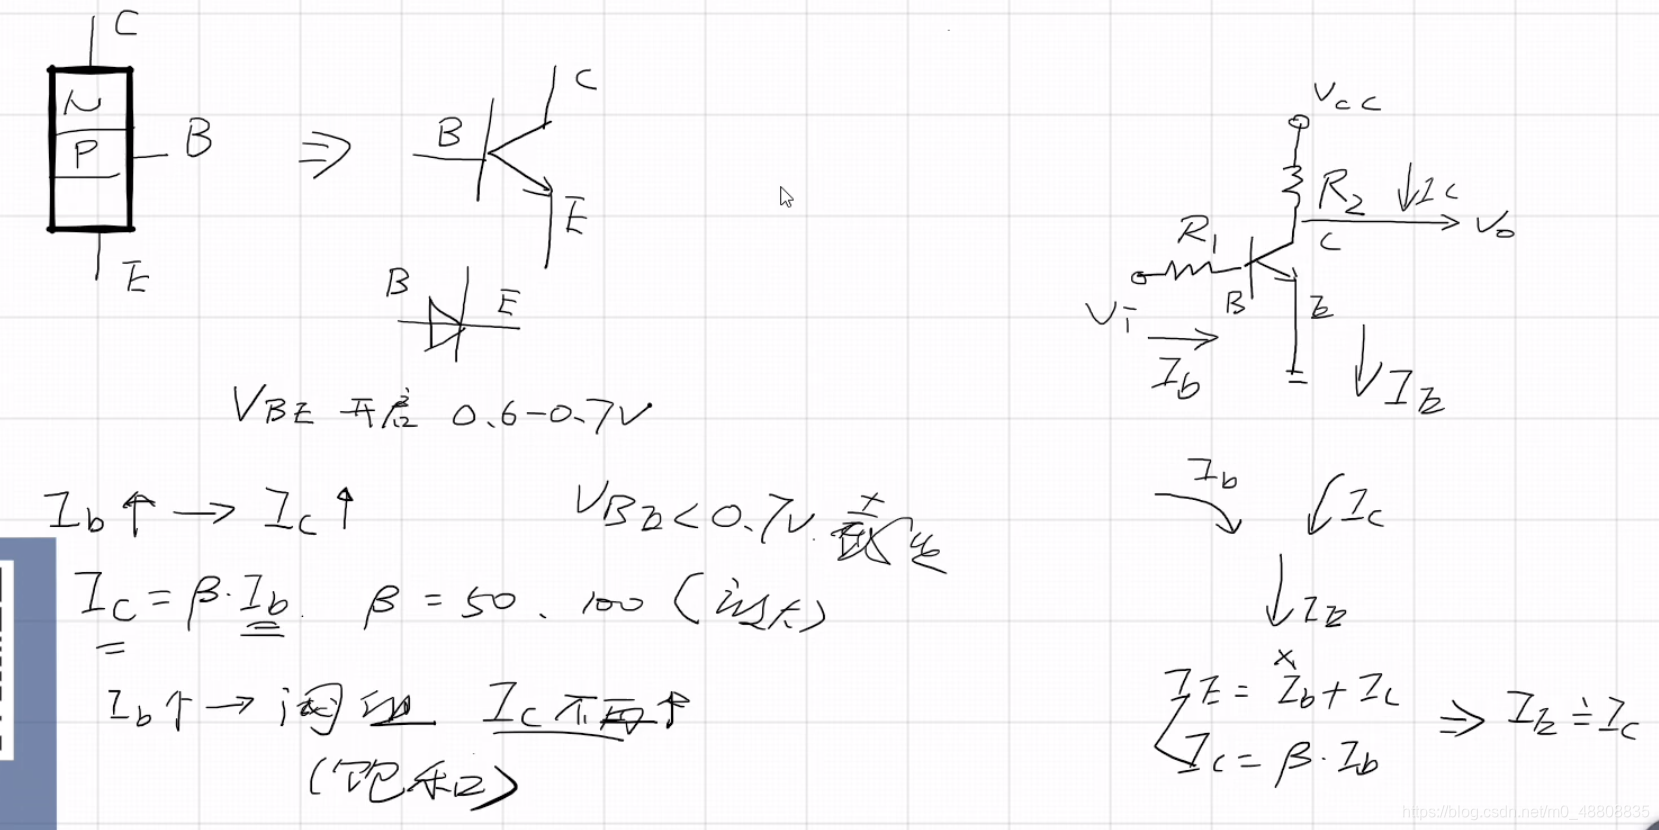 C
N
P
B
E
⇒
B
C
E
B
E
V_BE 开启 0.6-0.7V
I_b ↑ → I_c ↑
V_BE < 0.7V. 截止
I_c = β·I_b. β = 50、100 (放大)
I_b ↑ → 阈值 I_c 不再 ↑
(饱和)
Vcc
R_2 ↓ I_c
V_o
R_1
C
B
E
V_i
I_b
I_E
I_b
I_c
I_E
I_E = I_b + I_c ⇒ I_E ≐ I_c
I_c = β·I_b
https://blog.csdn.net/m0_48808835